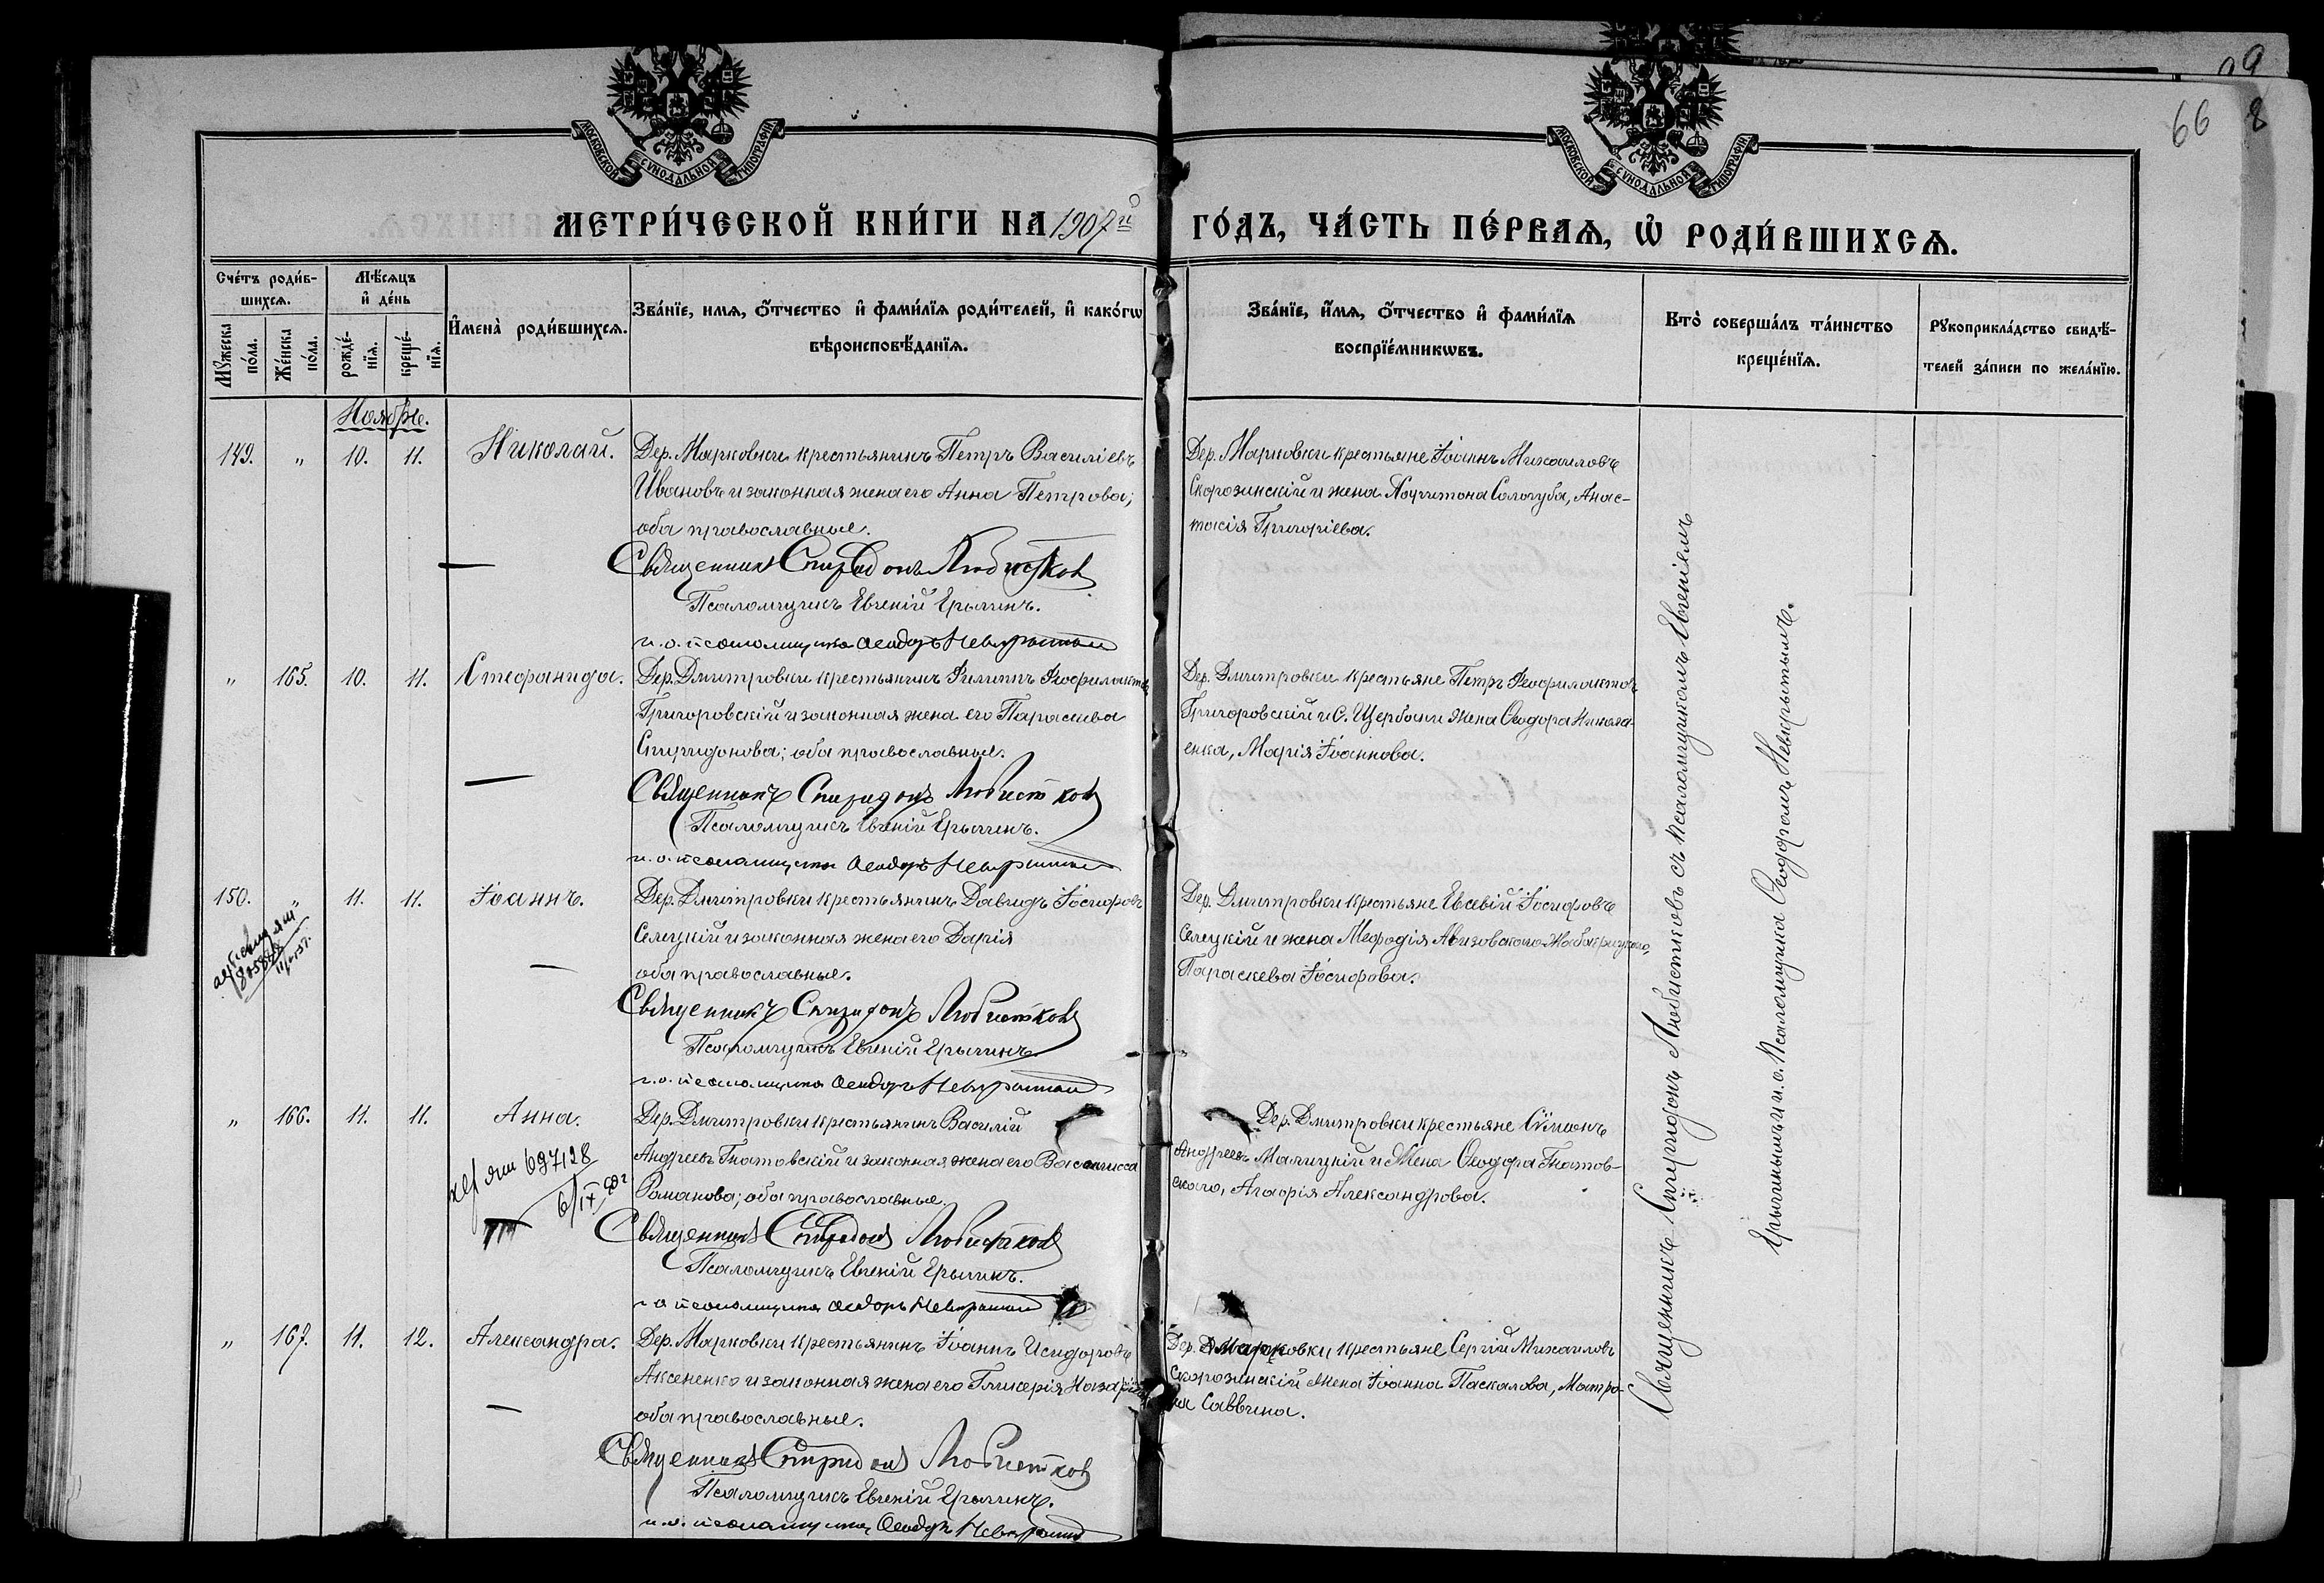 66
МОСКОВСКОЙ СУНОДАЛЬНОЙ ТИПОГРАФІИ
МОСКОВСКОЙ СУНОДАЛЬНОЙ ТИПОГРАФІИ
МЕТРИ́ЧЕСКОЙ КНИ́ГИ НА 1907й ГО́ДЪ, ЧА́СТЬ ПЕ́РВАѦ, Ѡ РОДИ́ВШИХСѦ.
Сче́тъ роди́в-
шихсѧ.
Мꙋжеска по́ла.
Же́нска по́ла.
Мѣ́сѧцъ
и҆ де́нь
рожде́-нїѧ.
креще́-нїѧ.
И҆мена̀ роди́вшихсѧ.
Зва́нїе, имѧ, ѻ҆́тчество и҆ фами́лїѧ роди́телей, и҆ како́гѡ
вѣроисповѣ́данїѧ.
Зва́нїе, и҆́мѧ, ѻ҆́тчество и҆ фами́лїѧ
воспрїе́мникѡвъ.
Кто̀ соверша́лъ та́инство
креще́нїѧ.
Рꙋкоприкла́дство свидѣ́-
телей за́писи по жела́нїю.
Ноябрь.
149. " 10. 11. Николай.
Дер. Марковки крестьянинъ Петръ Василіевъ
Ивановъ и законная жена его Анна Петрова;
оба православные.
Священникъ Спиридонъ Любистковъ
Псаломщикъ Евгеній Ерыгинъ.
и. о. псаломщика Ѳеодоръ Невкрытый
Дер. Марковки крестьяне Іоаннъ Михаиловъ
Скорозинскій и жена Харитона Сологуба, Анас-
тасія Григоріева.
" 165. 10. 11. Стефанида.
Дер. Дмитровки крестьянинъ Филиппъ Феофилактовъ
Григоровскій и законная жена его Параскева
Спиридонова; оба православные.
Священникъ Спиридонъ Любистковъ
Псаломщикъ Евгеній Ерыгинъ.
и. о. псаломщика Ѳеодоръ Невкрытый
Дер. Дмитровки крестьяне Петръ Феофилактовъ
Григоровскій и С. Щербани жена Ѳеодора Никола-
енка, Марія Іоаннова.
150. " 11. 11. Іоаннъ.
Дер. Дмитровки крестьянинъ Давидъ Іосифовъ
Селецкій и законная жена его Дарія
оба православные.
Священникъ Спиридонъ Любистковъ
Псаломщикъ Евгеній Ерыгинъ
и. о. псаломщика Ѳеодоръ Невкрытый
Дер. Дмитровки крестьяне Евсевій Іосифовъ
Селецкій и жена Меѳодія
Параскева Іосифова.
" 166. 11. 11. Анна.
697128
Дер. Дмитровки крестьянинъ Василій
Андреевъ Гнатовскій и законная жена его Васса
Романова; оба православные.
Священникъ Спиридонъ Любистковъ
Псаломщикъ Евгеній Ерыгинъ.
и. о. псаломщика Ѳеодоръ Невкрытый
Дер. Дмитровки крестьяне Сѵмеонъ
Андреевъ Малицкій и жена Ѳеодора Гнатов-
скаго, Агафія Александрова.
" 167. 11. 12. Александра.
Дер. Марковки крестьянинъ Іоаннъ Исидоровъ
Аксененко и законная жена его Гликерія
оба православные.
Священникъ Спиридонъ Любистковъ
Псаломщикъ Евгеній Ерыгинъ.
и. о. псаломщика Ѳеодоръ Невкрытый
Дер. Марковки крестьяне Сергій Михаиловъ
Скорозинскій жена Іоанна Паскалова, Матро-
на Саввина.
Священникъ Спиридонъ Любистковъ съ псаломщикомъ Евгеніемъ
Ерыгинымъ и и. о. псаломщика Ѳеодоромъ Невкрытымъ.